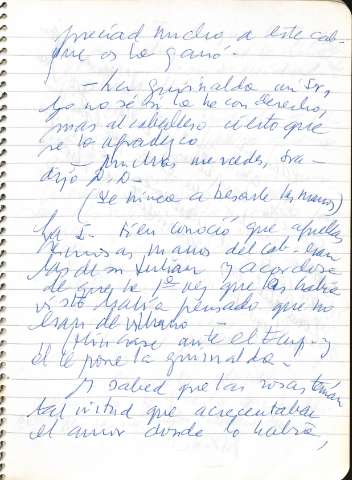 preciad mucho a este cab-
que os la ganó.
- La guirnalda mi Sr,
yo no sé si la he con derecho,
mas al caballero cierto que
se la agradezco
- Muchas mercedes, Sra -
dijo D. D.-
(Se hinca a besarle las manos)
La I. bien conoció que aquellas
hermosas manos del cab- eran
las de su Julián y acordose
de que la 1ª vez que las había
visto había pensado que no
eran de villano -
Hincose ante el Emp. y
él le pone la guirnalda -
Y sabed que las rosas tenían
tal virtud que acrecentaban
el amor donde lo había,